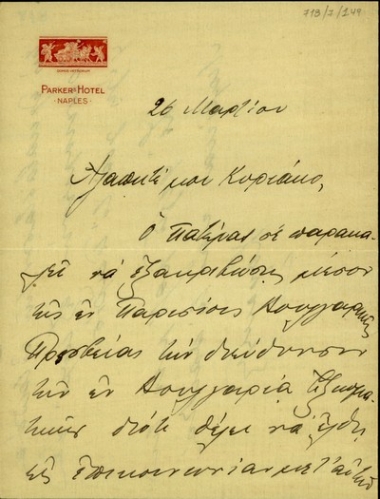 713/2/144
PARKER'S HOTEL
NAPLES
26 Μαρτίου
Αγαπητέ μου Κυριάκο,
Ο Πατέρας σέ παρακα-
λεί νά εξακριβώσης μέσον
της εν Παρισίοις Βουλγαρικής
Πρεσβείας την διεύθυνσιν
την εν Βουλγαρία
διότι θέλει νά έλθη
εις επικοινωνίαν μετ' αυτού